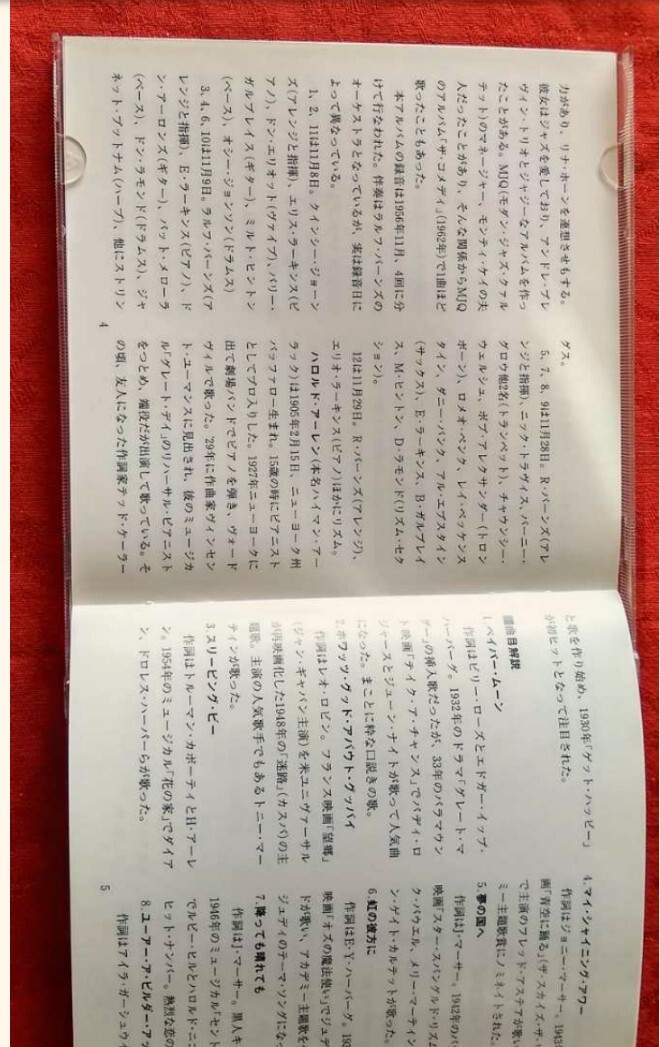 力があり、リナ・ホーンを連想させもする。
彼女はジャズを愛しており、アンドレ・プレ
ヴィン・トリオとジャジーなアルバムを作っ
たことがある。MJQ(モダン・ジャズ・クァル
テット)のマネージャー、モンティ・ケイの夫
人だったことがあり、そんな関係からMJQ
のアルバム「ザ・コメディ」(1962年)で1曲ほど
歌ったこともあった。
本アルバムの録音は1956年11月、4回に分
けて行なわれた。伴奏はラルフ・バーンズの
オーケストラとなっているが、実は録音日に
よって異なっている。
1、2、11は11月8日。クインシー・ジョーン
ズ(アレンジと指揮)、エリス・ラーキンス(ピ
アノ)、ドン・エリオット(ヴァイブ)、バリー・
ガルブレイス(ギター)、ミルト・ヒントン
(ベース)、オシー・ジョンソン(ドラムス)
3、4、6、10は11月9日。ラルフ・バーンズ(ア
レンジと指揮)、E・ラーキンス(ピアノ)、ド
ン・アーロンズ(ギター)、パット・メローラ
(ベース)、ドン・ラモンド(ドラムス)、ジャ
ネット・プットナム(ハープ)、他にストリン
グス。
5、7、8、9は11月28日。R・バーンズ(アレ
ンジと指揮)、ニック・トラヴィス、バーニー・
グロウ他2名(トランペット)、チャウンシー・
ウェルシュ、ボブ・アレクサンダー(トロン
ボーン)、ロメオ・ペンク、レイ・ベッケンス
タイン、ダニー・バンク、アル・エプスタイン
(サックス)、E・ラーキンス、B・ガルブレイ
ス、M・ヒントン、D・ラモンド(リズム・セク
ション)。
12は11月29日。R・バーンズ(アレンジ)、
エリオ・ラーキンス(ピアノ)ほかにリズム。
ハロルド・アーレン(本名ハイマン・アー
ラック)は1905年2月15日、ニューヨーク州
バッファロー生まれ。15歳の時にピアニスト
としてプロ入りした。1927年ニューヨークに
出て劇場バンドでピアノを弾き、ヴォード
ヴィルで歌った。'29年に作曲家ヴィンセン
ト・ユーマンスに見出され、彼のミュージカ
ル「グレート・デイ」のリハーサル・ピアニスト
をつとめ、端役だが出演して歌っている。そ
の頃、友人になった作詞家テッド・ケーラー
4
と歌を作り始め、1930年「ゲット・ハッピー」
が初ヒットとなって注目された。
曲目解説
1.ペイパー・ムーン
作詞はビリー・ローズとエドガー・イップ・
ハーバーグ。1932年のドラマ「グレート・マ
グー」の挿入歌だったが、33年のパラマウン
ト映画「テイク・ア・チャンス」でバディ・ロ
ジャースとジューン・ナイトが歌って人気曲
になった。まことに粋な口説きの歌。
2.ホワッツ・グッド・アバウト・グッバイ
作詞はレオ・ロビン。フランス映画「望郷」
(ジャン・ギャバン主演)を米ユニヴァーサル
が再映画化した1948年の「迷路」(カスバ)の主
題歌。主演の人気歌手でもあるトニー・マー
ティンが歌った。
3.スリーピング・ビー
作詞はトルーマン・カポーティとH・アーレ
ン。1954年のミュージカル「花の家」でダイア
ン、ドロレス・ハーパーらが歌った。
4.マイ・シャイニング・アワー
作詞はジョニー・マーサー。1943
画「青空に踊る」(ザ・スカイズ・ザ・リ
で主演のフレッド・アステアが歌い
ミー主題歌賞にノミネイトされた。
5.夢の国へ
作詞はJ・マーサー。1942年のパ
映画「スター・スパングルド・リズム
ク・パウエル、メリー・マーティン
ン・ゲイト・カルテットが歌った。
6.虹の彼方に
作詞はE・Y・ハーバーグ。193
映画「オズの魔法使い」でジュデ
ドが歌い、アカデミー主題歌を
ジュディのテーマ・ソングになっ
7.降っても晴れても
作詞はJ・マーサー。黒人キ
1946年のミュージカル「セント
でルビー・ヒルとハロルド・ニコ
ヒット・ナンバー。熱烈な恋の
8.ユーアー・ア・ビルダー・アッ
作詞はアイラ・ガーシュウィ
5